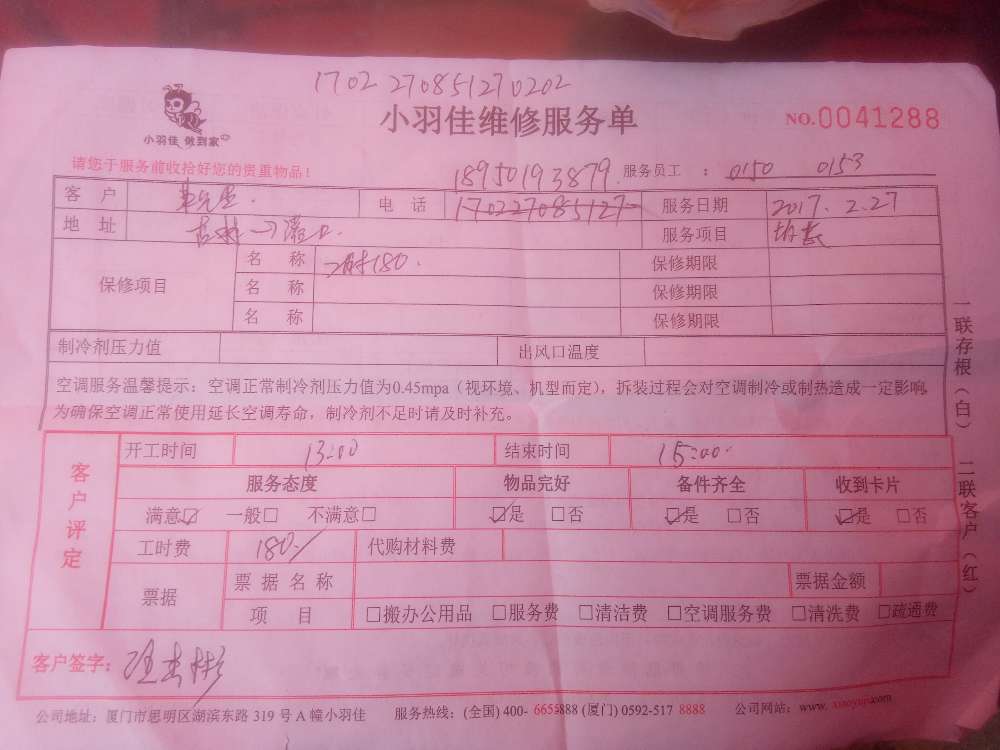 1702 270851270202
小羽佳 做到家
小羽佳维修服务单
NO.0041288
请您于服务前收拾好您的贵重物品！
18950193879
服务员工 ： 0150 0153
客 户 电 话 17022708512702 服务日期 2017.2.27
地 址 服务项目
保修项目 名 称 180. 保修期限
名 称 保修期限
名 称 保修期限
制冷剂压力值 出风口温度
空调服务温馨提示：空调正常制冷剂压力值为0.45mpa（视环境、机型而定），拆装过程会对空调制冷或制热造成一定影响，
为确保空调正常使用延长空调寿命，制冷剂不足时请及时补充。
一联存根（白） 二联客户（红）
客户评定
开工时间 13:00 结束时间 15:00
服务态度 物品完好 备件齐全 收到卡片
满意☑ 一般□ 不满意□ ☑是 □否 ☑是 □否 ☑是 □否
工时费 180/ 代购材料费
票据 票据名称 票据金额
项 目 □搬办公用品 □服务费 □清洁费 □空调服务费 □清洗费 □疏通费
客户签字：
公司地址：厦门市思明区湖滨东路 319 号 A 幢小羽佳 服务热线：(全国) 400-6655888 (厦门) 0592-517 8888 公司网站：www.xiaoyujia.com